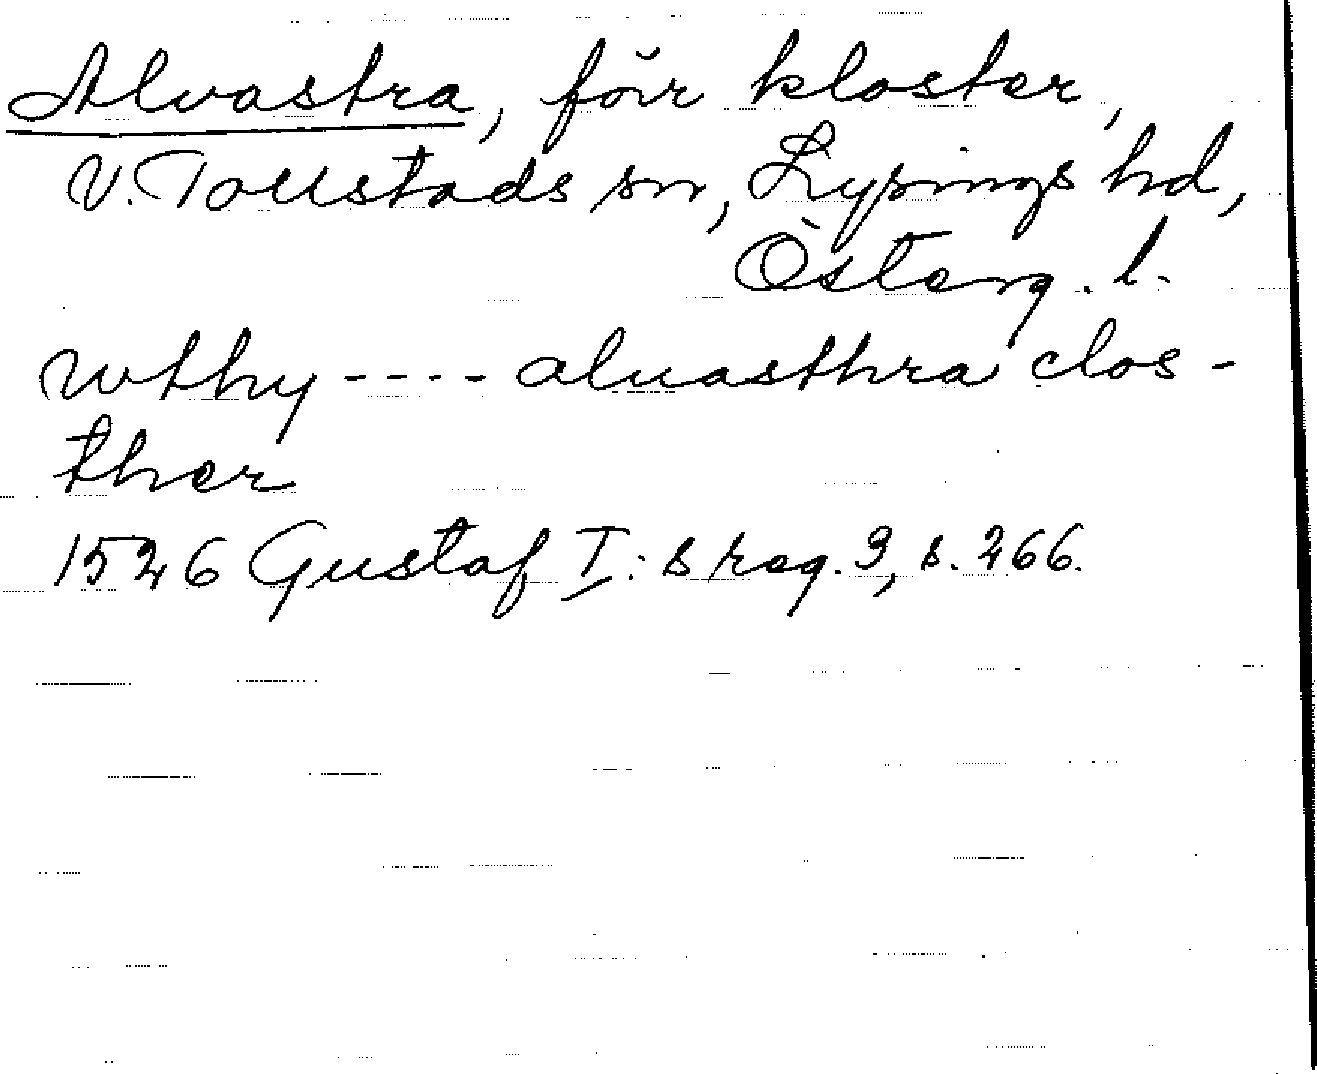 Alvastra, förr kloster,
V. Tollstads sn, Lysings hd,
Österg. l.
wthy ---- aluasthra clos-
ther
1526 Gustaf I:s reg. 3, s. 266.